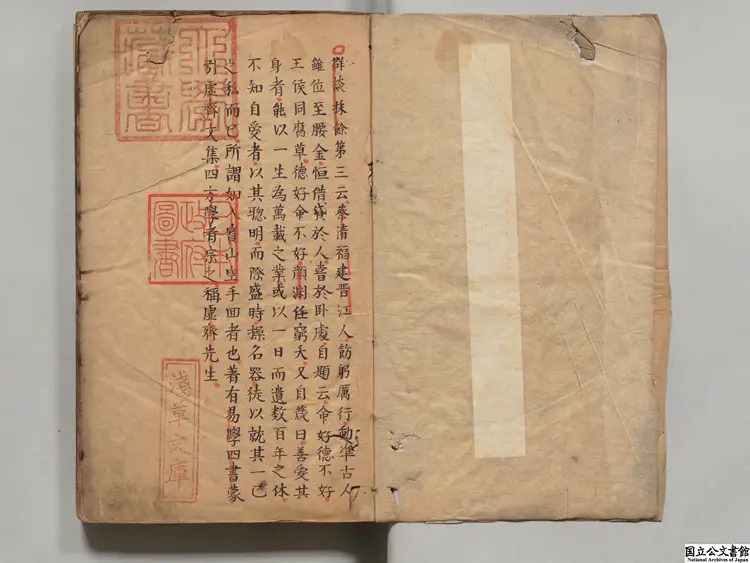 群談採餘第三云蔡清福建晋江人飭躬厲行動準古人
雖位至腰金恒借貸於人嘗於卧處自題云命好德不好
王侯同腐草德好命不好顏淵任窮夭又自箴曰善愛其
身者能以一生為萬載之業或以一日而遺數百年之休
不知自愛者以其聰明而際盛時操名器徒以就其一己
之私而已所謂如入寳山空手回者也著有易學四書蒙
引虛齊文集四方學者宗之稱虛齊先生
藏書
日本政府圖書
淺草文庫
国立公文書館
National Archives of Japan